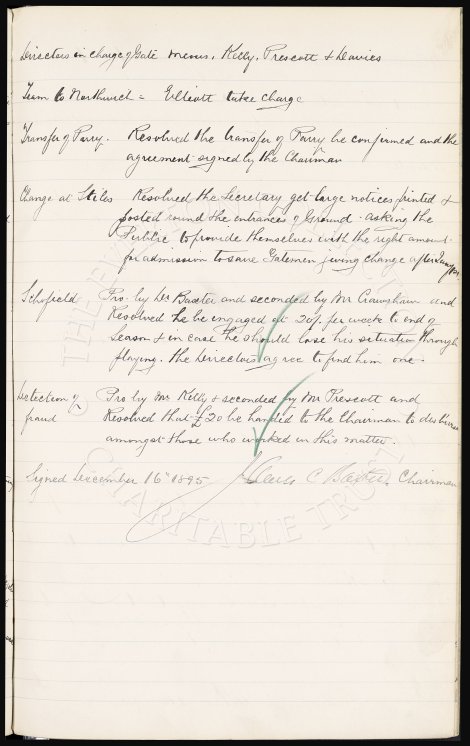 Directors in charge of Gate Messrs. Kelly, Prescott & Davies
Team to Northwich = Elliott take charge
Transfer of Parry. Resolved the transfer of Parry be confirmed and the
agreement signed by the Chairman
Change at Stiles Resolved the Secretary get large notices printed &
posted round the entrances of Ground - asking the
Public to provide themselves with the right amount
for admission to save Gatemen giving change after
Schofield Pro. by Dr Baxter and seconded by Mr Crawshaw and
Resolved he be engaged at 20/. per week to end of
Season & in case he should lose his situation through
playing. the Directors agree to find him one.
Detection of fraud Pro by Mr Kelly & seconded by Mr Prescott and
Resolved that £20 be handed to the Chairman to disburse
amongst those who worked in this matter.
Signed December 16th 1895 James C Baxter. Chairman
THE EVERTON
CHARITABLE TRUST